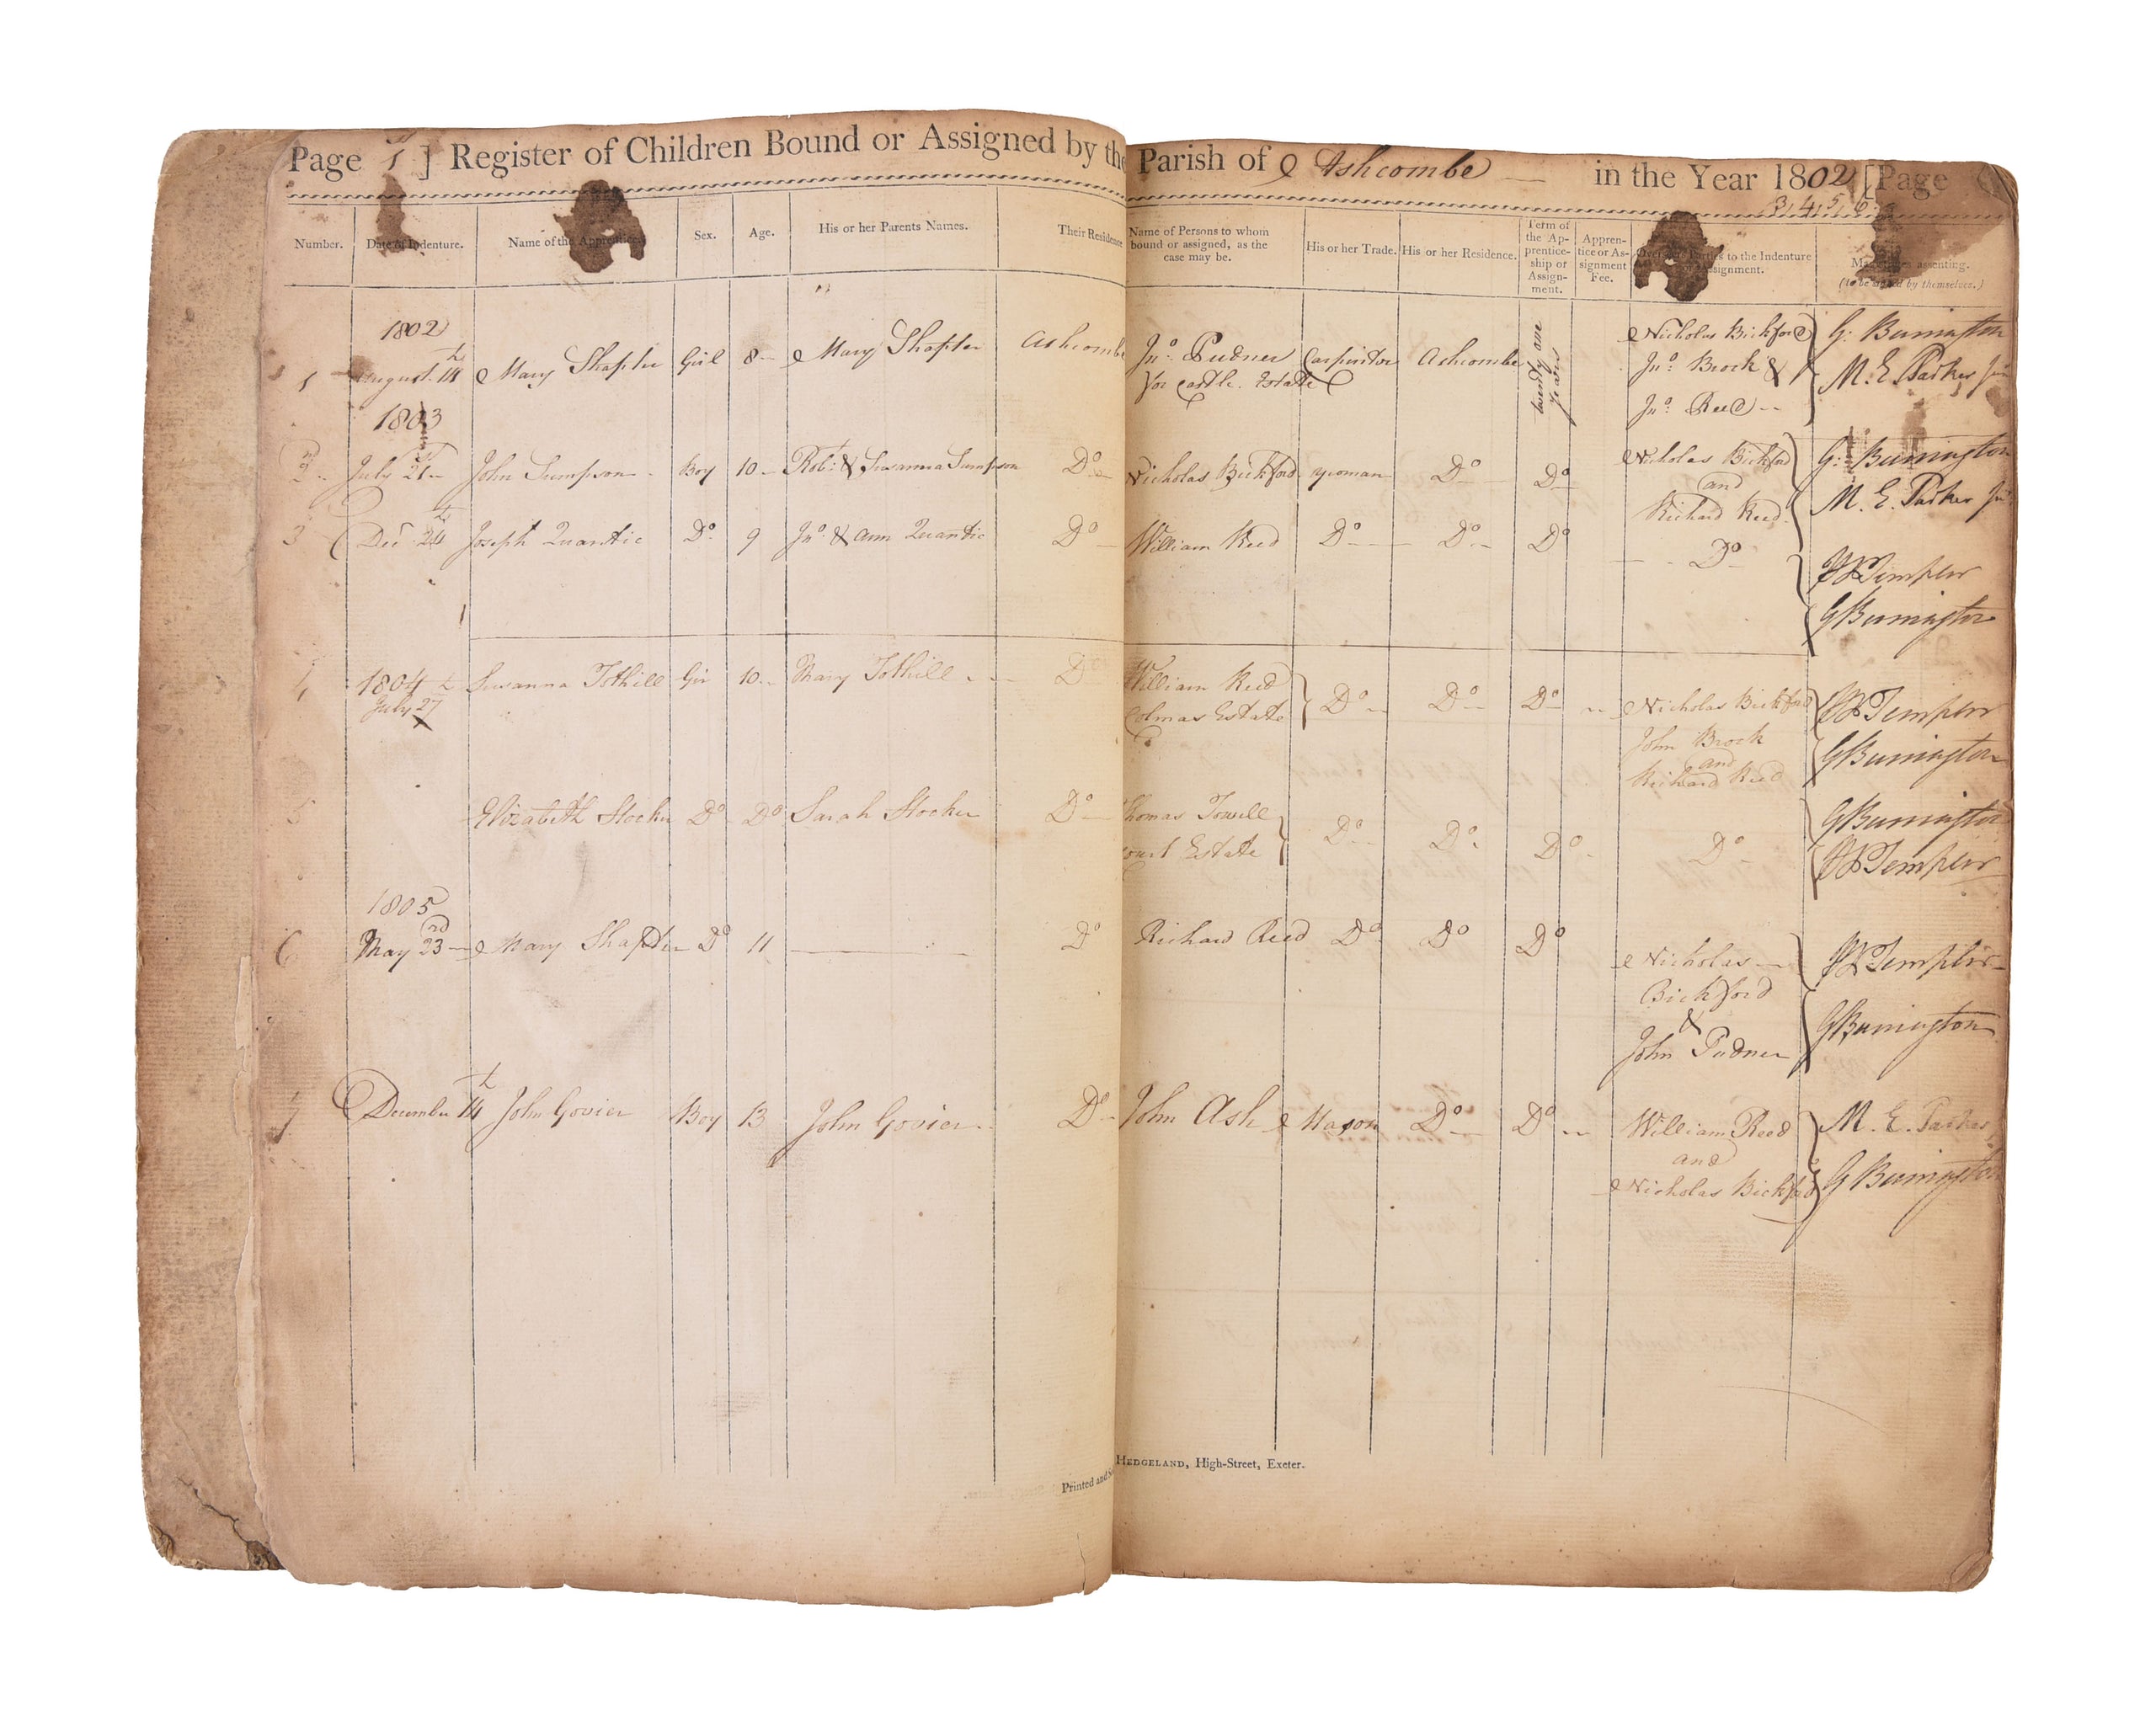 Page 1 ] Register of Children Bound or Assigned by the Parish of Ashcombe in the Year 1802 [Page
3, 4, 5, 6
Number. Date of Indenture. Name of the Apprentice. Sex. Age. His or her Parents Names. Their Residence Name of Persons to whom bound or assigned, as the case may be. His or her Trade. His or her Residence. Term of the Ap-prentice-ship or Assign-ment. Appren-tice or As-signment Fee. Overseers Parties to the Indenture or Assignment. Magistrates assenting. (to be signed by themselves.)
1802
1 August 14th Mary Shapter Girl 8 Mary Shapter Ashcombe Jno. Pudner Carpinter Ashcombe twenty one Years Nicholas Bickford G: Bunington
for Castle Estate Jno. Brock & M. E. Parker Jun
Jno. Reed
1803
2 July 21st John Sumpson Boy 10 Robt. & Susanna Sumpson Do Nicholas Bickford yeoman Do Do Nicholas Bickford G: Bunington
and
Richard Reed M. E. Parker Jun
3 Decr 24th Joseph Quantic Do. 9 Jno. & Ann Quantic Do William Reed Do Do Do Do JTempler
GBunington
4 1804 Susanna Tothill Gir 10 Mary Tothill D William Reed Do Do Do Nicholas Bickford Templer
July 27th Colmas Estate John Brock GBunington
and
Richard Reed
5 Elizabeth Stocker Do Do Sarah Stocker Do Thomas Towell Do Do. Do Do GBunington
Court Estate Templer
1805
6 May 23rd Mary Shapter Do 11 Do Richard Reed Do Do Do Nicholas Templer
Bickford
& GBunington
John Pudner
7 December 14th John Govier Boy 13 John Govier Do John Ash Mason Do Do William Reed M. E. Parker
and
Nicholas Bickford G Bunington
Printed and HEDGELAND, High-Street, Exeter.